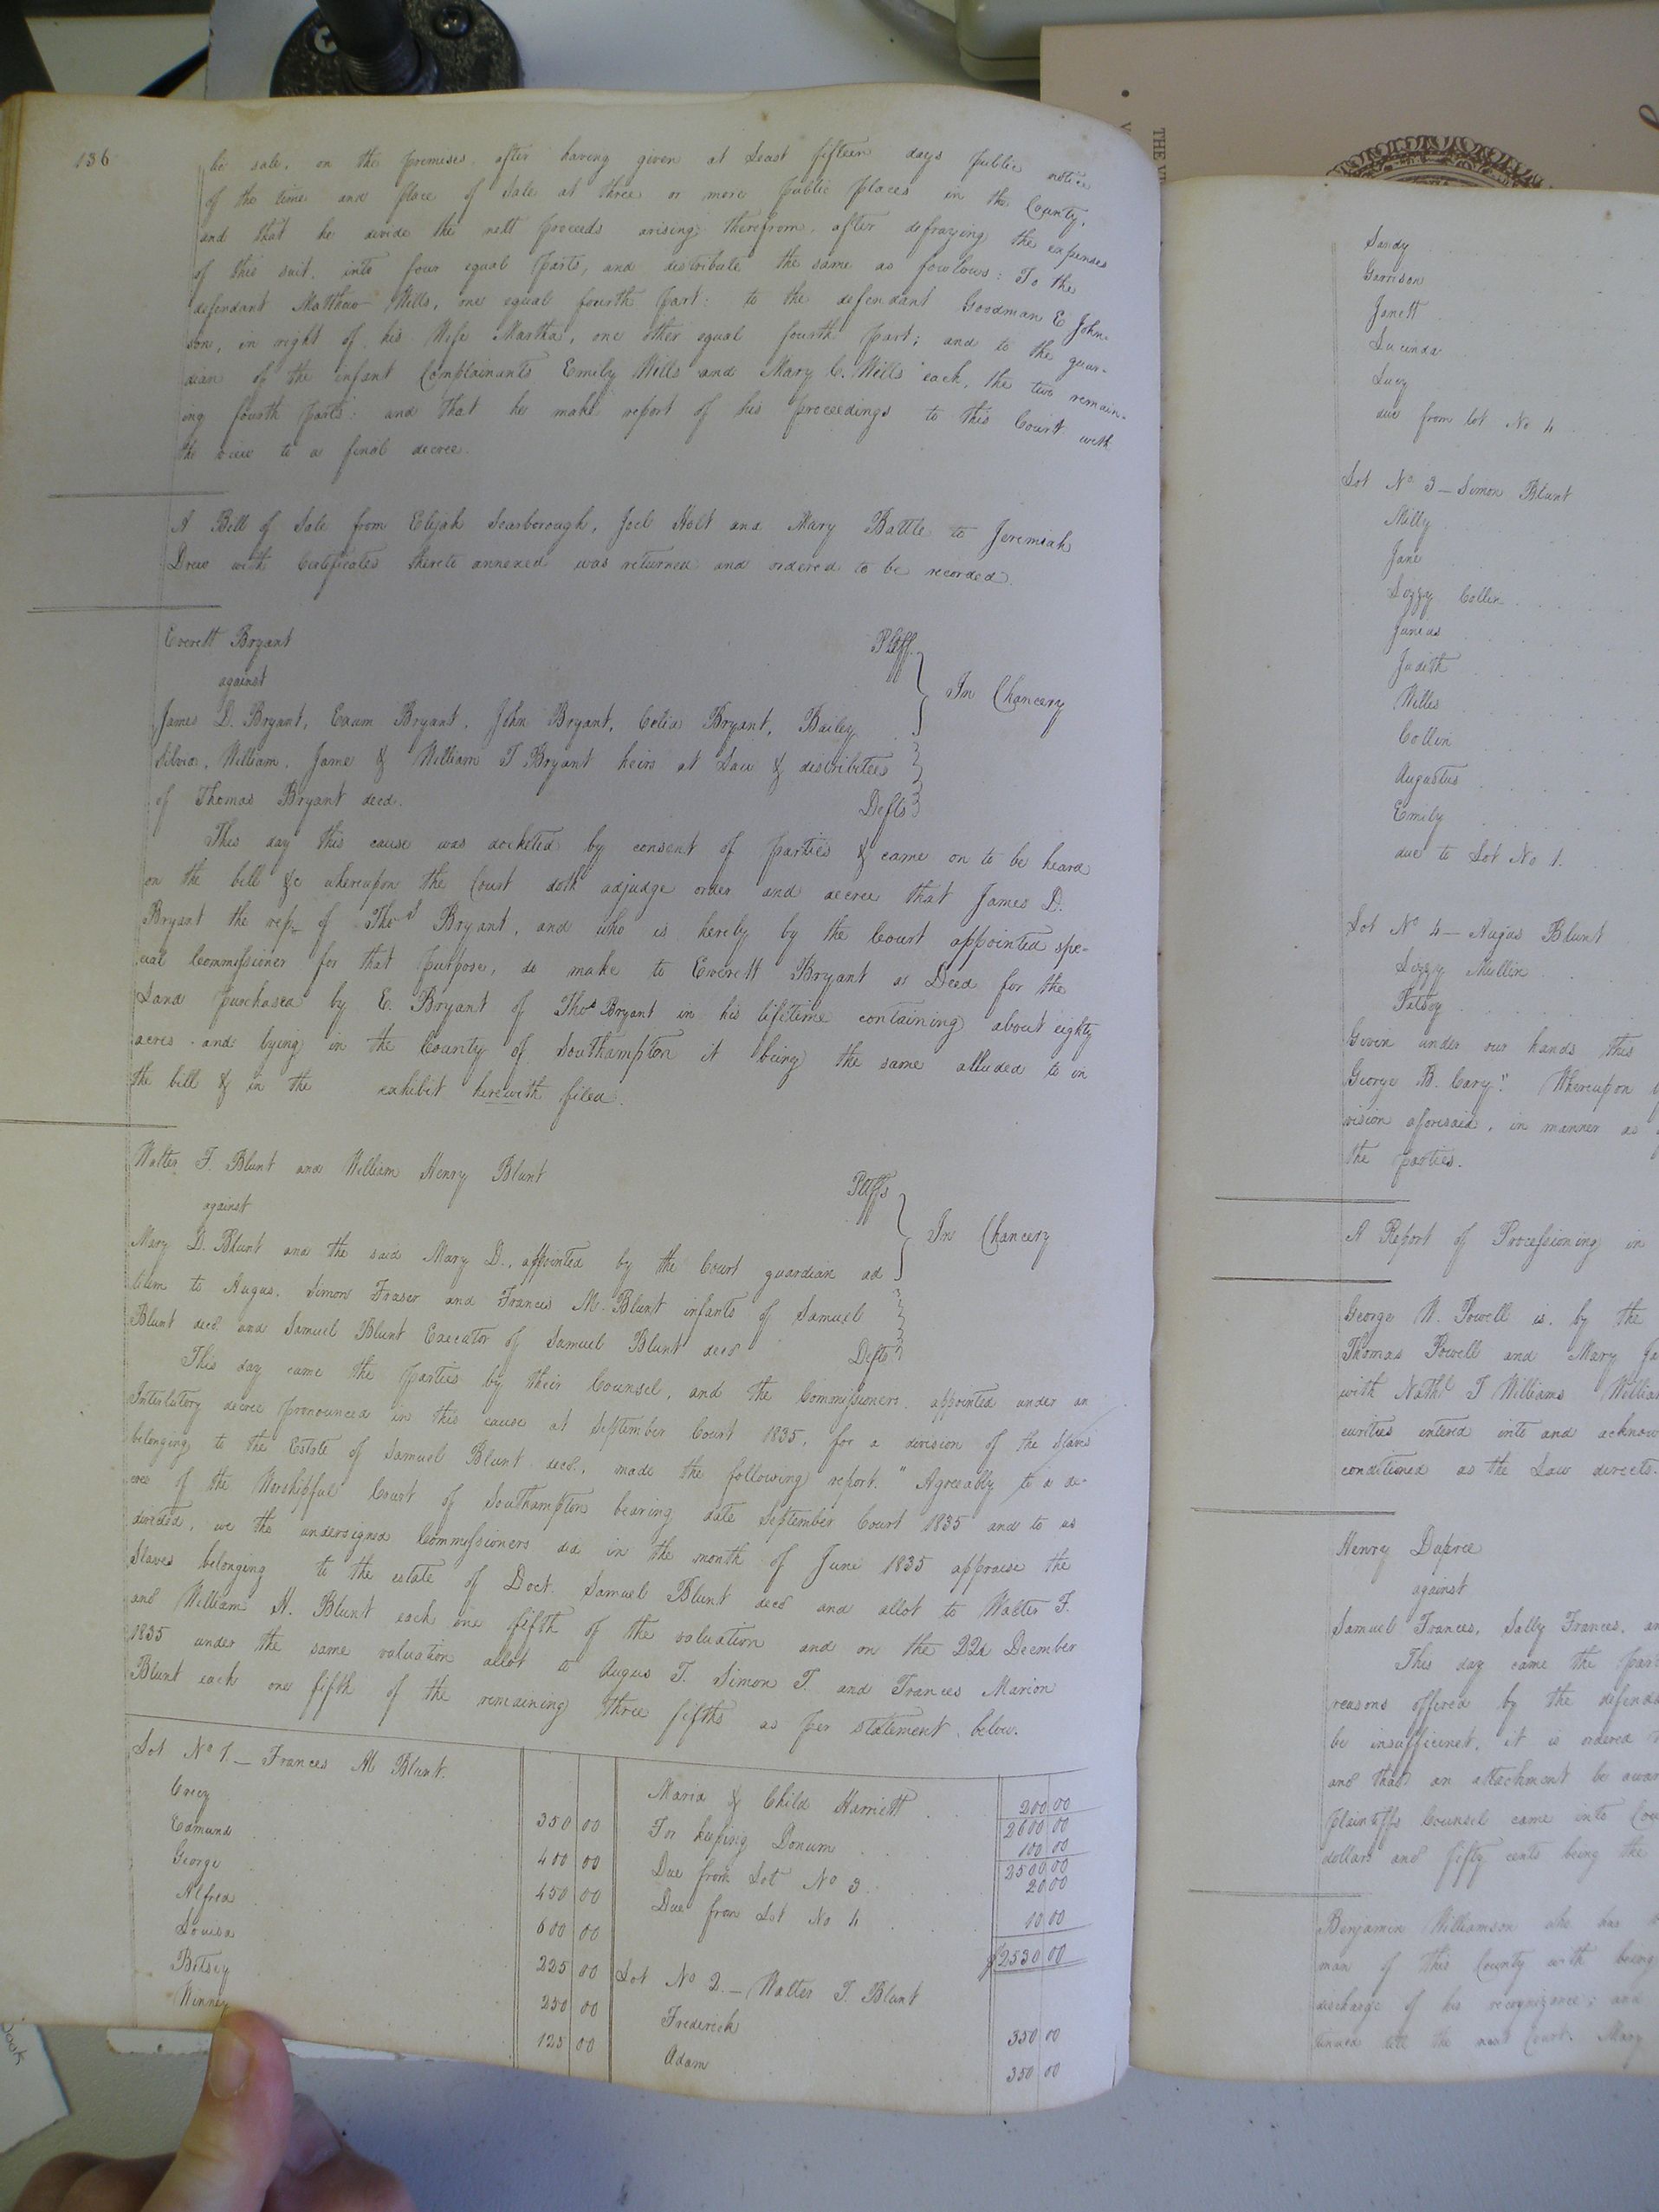 136
be sale, on the premises after having given at least fifteen days public notice
of the time and place of sale at three or more public places in the County,
and that he divide the nett proceeds arising therefrom, after defraying the expenses
of this suit, into four equal parts, and distribute the same as fowlows: To the
defendant Matthew Wills, one equal fourth part: to the defendant Goodman E John-
son, in right of his Wife Martha, one other equal fourth part; and to the guar-
dian of the infant Complainants Emily Wills and Mary C. Wills each, the two remain-
ing fourth parts: and that he make report of his proceedings to this Court with
the view to a final decree.
A Bill of Sale from Elijah Scarborough, Joel Holt and Mary Battle to Jeremiah
Drew with Certificates thereto annexed was returned and ordered to be recorded.
Everett Bryant Pltff.
against In Chancery
James D. Bryant, Exum Bryant, John Bryant, Celia Bryant, Bailey
Silvia, William, Jame & William T Bryant heirs at Law & distributees
of Thomas Bryant decd. Defts
This day this cause was docketed by consent of parties & came on to be heard
on the bill &c whereupon the Court doth adjudge order and decree that James D.
Bryant the rep. of Thos Bryant, and who is hereby by the Court appointed spe-
cial Commissioner for that purpose, do make to Everett Bryant a Deed for the
Land purchased by E. Bryant of Thos Bryant in his lifetime containing about eighty
acres and lying in the County of Southampton it being the same alluded to in
the bill & in the exhibit herewith filed.
Walter F. Blunt and William Henry Blunt Pltffs
against In Chancery
Mary D. Blunt and the said Mary D., appointed by the Court guardian ad
litem to Augus, Simon Fraser and Frances M. Blunt infants of Samuel
Blunt decd. and Samuel Blunt Executor of Samuel Blunt decd Defts
This day came the parties by their Counsel, and the Commissioners appointed under an
Interlutory decree pronounced in this cause at September Court 1835, for a division of the slaves
belonging to the Estate of Samuel Blunt decd., made the following report. "Agreeably to a de-
cree of the Worshipful Court of Southampton bearing date September Court 1835 and to us
directed, we the undersigned Commissioners did in the month of June 1835 appraise the
Slaves belonging to the estate of Doct. Samuel Blunt decd and allot to Walter F.
and William H. Blunt each one fifth of the valuation and on the 22d December
1835 under the same valuation allot to Augus F. Simon F. and Frances Marion
Blunt each one fifth of the remaining three fifths as per statement below.
Lot No 1 — Frances M Blunt.
Creey 350 00
Edmund 400 00
George 450 00
Alfred 600 00
Louisa 225 00
Betsey 250 00
Winney 125 00
Maria & Child Harriett 200 00
2600 00
For keeping Donum 100 00
2500 00
Due from Lot No 3 20 00
Due from Lot No 4 10 00
$2530 00
Lot No 2. — Walter F. Blunt
Frederick 350 00
Adam 350 00
Sandy
Garrison
Janett
Lucinda
Lucy
due from lot No 4
Lot No 3 — Simon Blunt
Milly
Jane
Lozzy Collin
Junius
Judith
Willis
Collin
Augustus
Emily
due to Lot No 1.
Lot No 4 — Augus Blunt
Lozzy Mullin
Patsey
Given under our hands this
George B. Cary." Whereupon
vision aforesaid, in manner as
the parties.
A Report of Processioning in
George W. Powell is by the
Thomas Powell and Mary
with Nathl T Williams
curities entered into and acknow
conditioned as the Law directs.
Henry Dupree
against
Samuel Frances, Sally Frances, an
This day came the par
reasons offered by the defend
be insufficinet, it is ordered
and that an attachment be awar
plaintiffs Counsel came into Cou
dollars and fifty cents being the
Benjamin Williamson who has
man of this County with being
discharge of his recognizance; and
tinued till the next Court. Mary
THE VI
ook